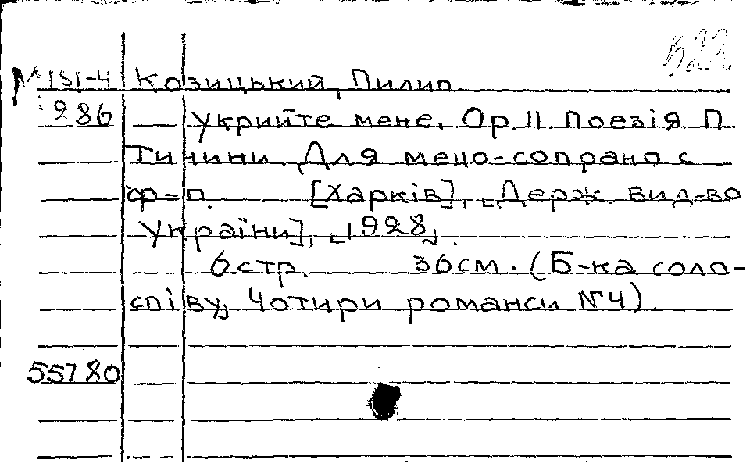 М 151-4 Козицький, Пилип.
286 Укрийте мене. Ор. 11 Поезія П
Тичини Для мецо-сопрано с
ф-п. [Харків], [Держ. вид-во
України], [1928].
6 стр. 36 см. (Б-ка соло-
співу, Чотири романси №4)
55780